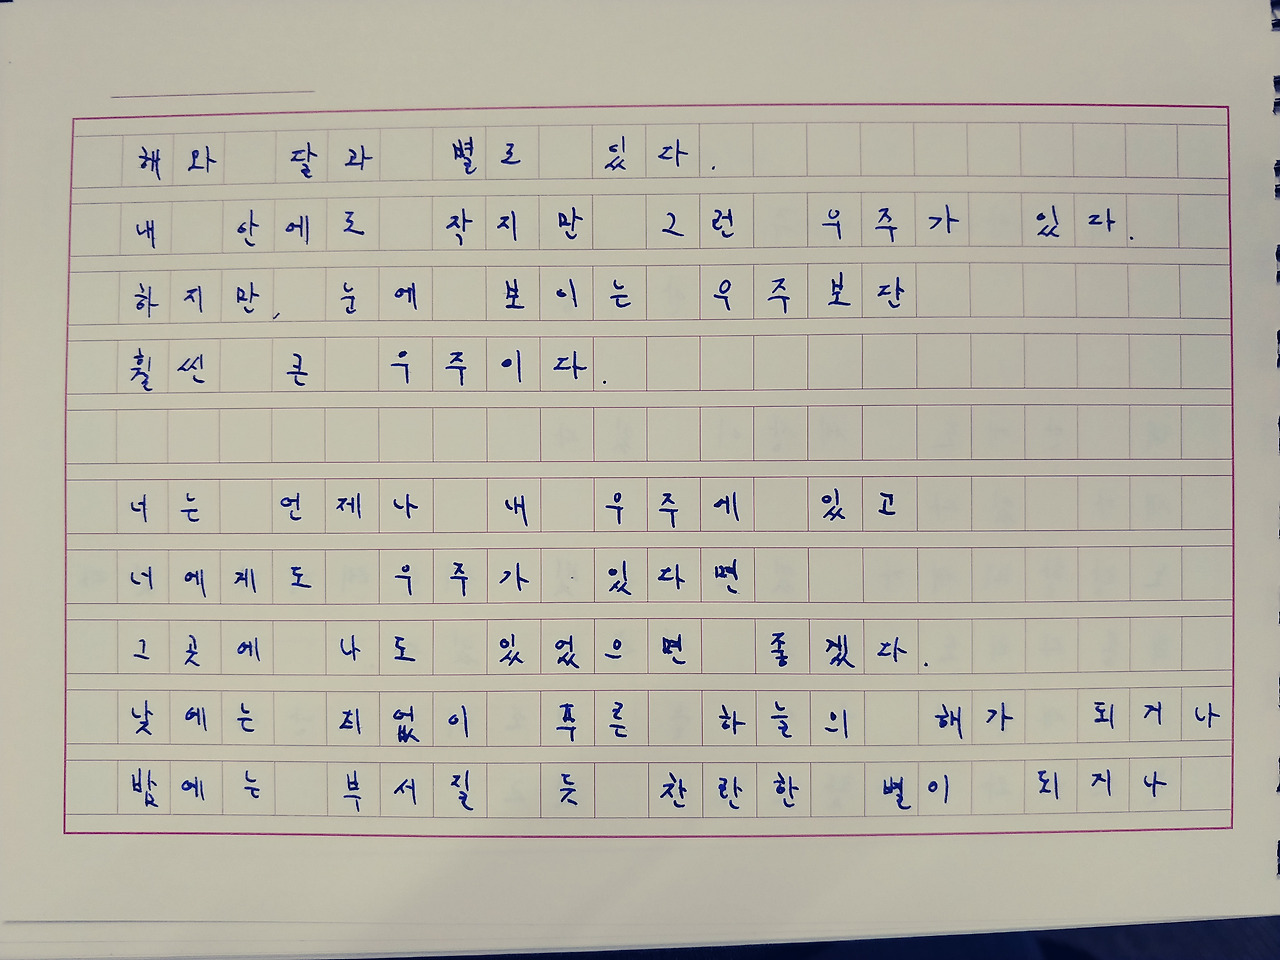 해와 달과 별로 있다.
내 안에로 작지만 그런 우주가 있다.
하지만, 눈에 보이는 우주보단
훨씬 큰 우주이다.
너는 언제나 내 우주에 있고
너에게도 우주가 있다면
그곳에 나도 있었으면 좋겠다.
낮에는 티없이 푸른 하늘의 해가 되거나
밤에는 부서질 듯 찬란한 별이 되지나